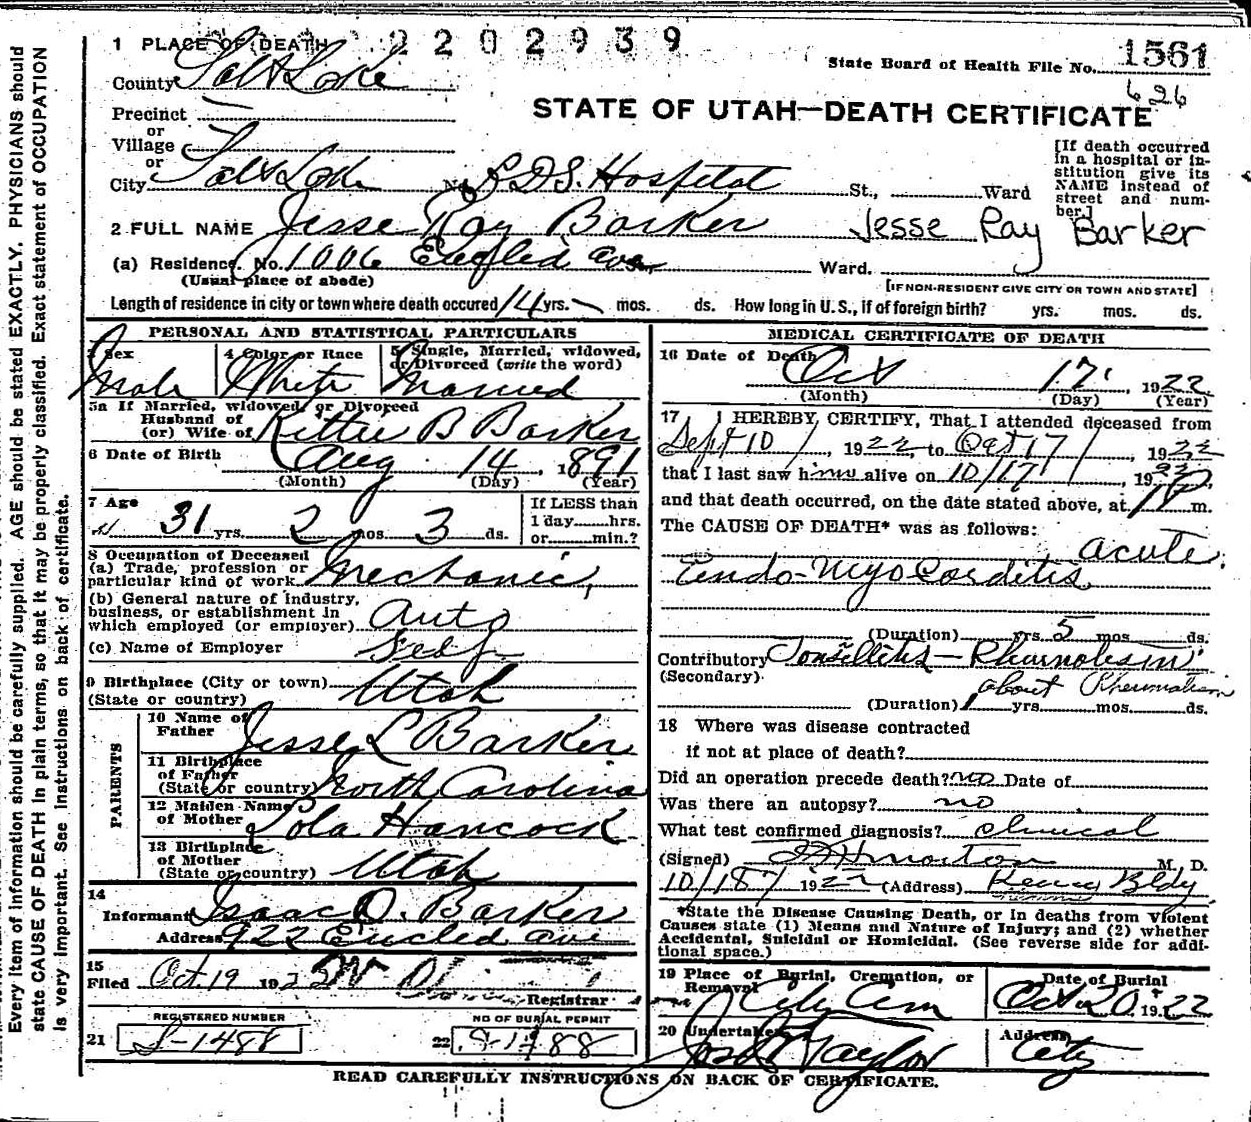 2202939
1 PLACE OF DEATH
State Board of Health File No. 1561
626
County Salt Lake
STATE OF UTAH—DEATH CERTIFICATE
Precinct
or
Village
or
City Salt Lake No. L.D.S. Hospital St., Ward
[If death occurred in a hospital or institution give its NAME instead of street and number.]
2 FULL NAME Jesse Ray Barker Jesse Ray Barker
(a) Residence. No. 1006 Ave Ward.
(Usual place of abode) [IF NON-RESIDENT GIVE CITY OR TOWN AND STATE]
Length of residence in city or town where death occured 14 yrs. mos. ds. How long in U. S., if of foreign birth? yrs. mos. ds.
PERSONAL AND STATISTICAL PARTICULARS
3 Sex 4 Color or Race 5 Single, Married, widowed, or Divorced (write the word)
Male White Married
5a If Married, widowed, or Divorced
Husband of
(or) Wife of Kittie B Barker
6 Date of Birth Aug 14, 1891
(Month) (Day) (Year)
7 Age 31 yrs. 2 mos. 3 ds.
If LESS than
1 day hrs.
or min.?
8 Occupation of Deceased
(a) Trade, profession or
particular kind of work Mechanic,
(b) General nature of industry,
business, or establishment in
which employed (or employer) Auto
(c) Name of Employer Self
9 Birthplace (City or town)
(State or country) Utah
PARENTS
10 Name of
Father Jesse L Barker
11 Birthplace
of Father
(State or country) North Carolina
12 Maiden Name
of Mother Lola Hancock
13 Birthplace
of Mother
(State or country) Utah
14
Informant Isaac O. Barker
Address 922 Euclid Ave
15
Filed Oct. 19 1922
Registrar
REGISTERED NUMBER NO OF BURIAL PERMIT
21 S-1488 22 S-1488
MEDICAL CERTIFICATE OF DEATH
16 Date of Death
Oct 17, 1922
(Month) (Day) (Year)
17 I HEREBY CERTIFY, That I attended deceased from
Sept 10, 1922, to Oct 17, 1922
that I last saw him alive on 10/17, 1922,
and that death occurred, on the date stated above, at 1 P m.
The CAUSE OF DEATH* was as follows:
acute
Endo-Myo Carditis
(Duration) yrs 5 mos ds.
Contributory Tonsillitis - Rheumatism
(Secondary) about Rheumatism
(Duration) 1 yrs mos. ds.
18 Where was disease contracted
if not at place of death?
Did an operation precede death? no Date of
Was there an autopsy? no
What test confirmed diagnosis? clinical
(Signed) M. D.
10/18/, 1922 (Address) Bldg
*State the Disease Causing Death, or in deaths from Violent
Causes state (1) Means and Nature of Injury; and (2) whether
Accidental, Suicidal or Homicidal. (See reverse side for additional space.)
19 Place of Burial, Cremation, or Removal Date of Burial
City Cem Oct 20, 1922
20 Undertaker Address
Jos Taylor City
READ CAREFULLY INSTRUCTIONS ON BACK OF CERTIFICATE.
Every item of information should be carefully supplied. AGE should be stated EXACTLY. PHYSICIANS should
state CAUSE OF DEATH in plain terms, so that it may be properly classified. Exact statement of OCCUPATION
is very important. See instructions on back of certificate.